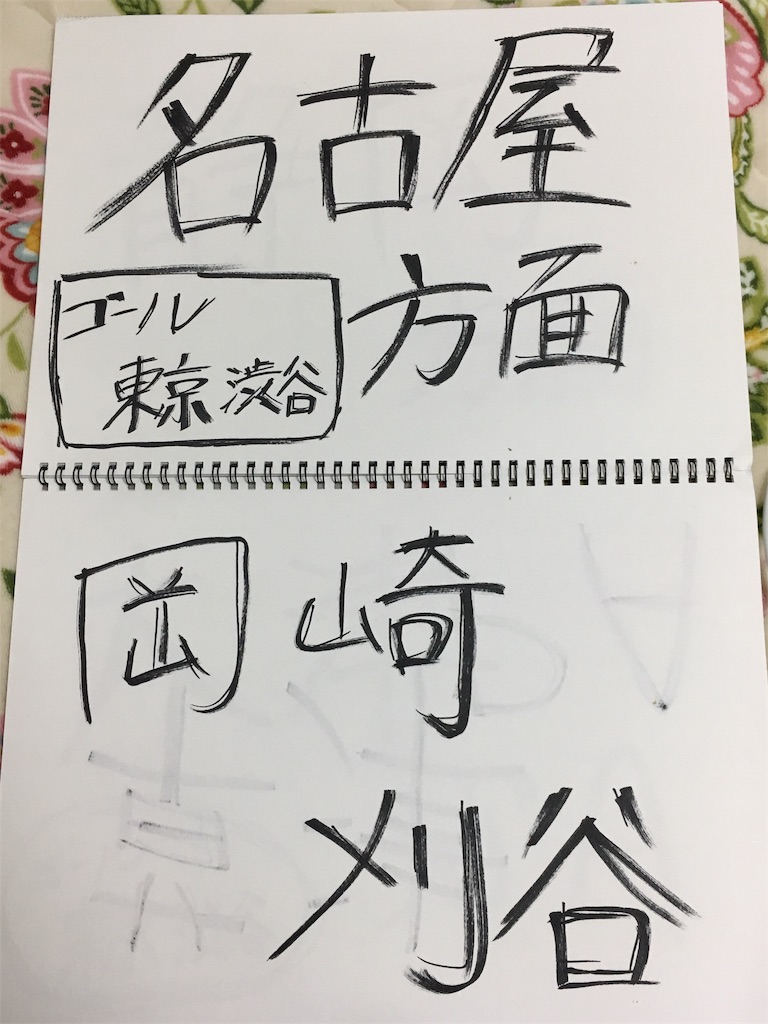 名古屋
方面
ゴール
東京渋谷
岡崎
刈谷